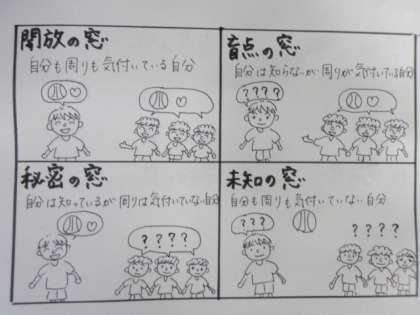 開放の窓
自分も周りも気付いている自分
盲点の窓
自分は知らないが周りが気付いている自分
????
秘密の窓
自分は知っているが周りは気付いていない自分
????
未知の窓
自分も周りも気付いていない自分
???
????